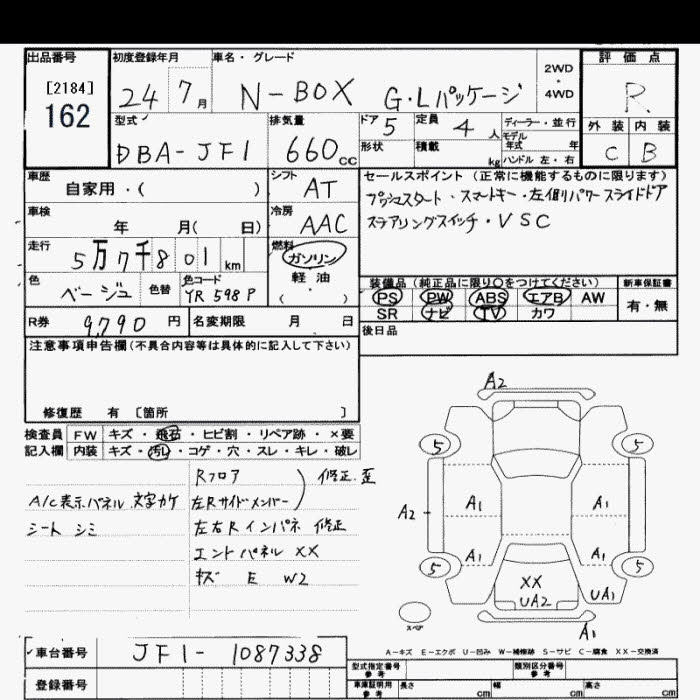 出品番号 初度登録年月 車名・グレード 2WD・4WD 評価点
[2184]
162
24 7月 N-BOX G・Lパッケージ R
型式 排気量 ドア 定員 ディーラー・並行 外装 内装
DBA-JF1 660cc 5 4人 モデル年式 年 C B
形状 積載 kg ハンドル 左・右
車歴 シフト セールスポイント(正常に機能するものに限ります)
自家用・( ) AT プッシュスタート・スマートキー・左側パワースライドドア
車検 冷房 ステアリングスイッチ・VSC
年 月( 日) AAC
走行 燃料
5万7千801km ガソリン
軽油
( )
色 色替 色コード 装備品(純正品に限り○をつけてください) 新車保証書
ベージュ YR598P PS PW ABS エアB AW 有・無
SR ナビ TV カワ
R券 9,790円 名変期限 月 日 後日品
注意事項申告欄(不具合内容等は具体的に記入して下さい)
修復歴 有 [箇所 ]
検査員 FW キズ・飛石・ヒビ割・リペア跡・×要
記入欄 内装 キズ・汚し・コゲ・穴・スレ・キレ・破レ
Rフロア 修正、歪
A/C表示パネル 文字カケ 左Rサイドメンバー
シート シミ 左右Rインパネ 修正
エンドパネル XX
キズ E W2
A2
5 5
A1 A1
A2
A1 A1
5 5
XX
UA2 UA1
スペア
A1
A-キズ E-エクボ U-凹み W-補修跡 S-サビ C-腐食 XX-交換済
車台番号 JF1-1087338 型式指定番号 参考 類別区分番号 参考
登録番号 車庫証明用 参考 長さ cm 幅 cm 高さ cm